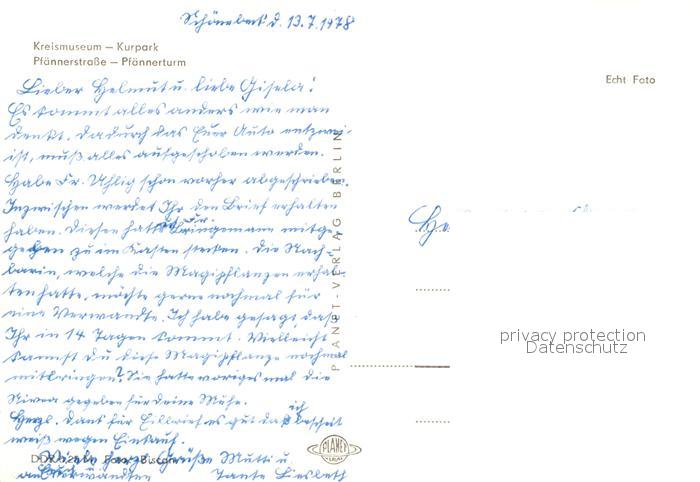 Schönebeck d. 13.7.1978
Kreismuseum — Kurpark
Pfännerstraße — Pfännerturm
Echt Foto
Lieber Helmut u. liebe Gisela!
Es kommt alles anders wie man
denkt. Dadurch das Euer Auto entzwei-
ist, muß alles aufgeschoben werden.
Habe Fr. Uhlig schon vorher abgeschrieben.
Inzwischen werdet Ihr den Brief erhalten
haben. Diesen hatte ich Fr. Bringemann mitge-
geben zu im Kasten stecken. Die Nach-
barin, welche die Magipflanzen erhal-
ten hatte, möchte gerne nochmal für
eine Verwandte. Ich habe gesagt, daß
Ihr in 14 Tagen kommt. Vielleicht
kannst du diese Magipflanze nochmal
mitbringen? Sie hatte voriges mal die
Nivea gegeben für deine Mühe.
Herzl. Dank für Eilbrief es gut daß ich bescheid
weiß wegen Einkauf.
Viele herzl. Grüße Mutti u
Tante Liesbeth
PLANET-VERLAG BERLIN
PLANET
privacy protection
Datenschutz